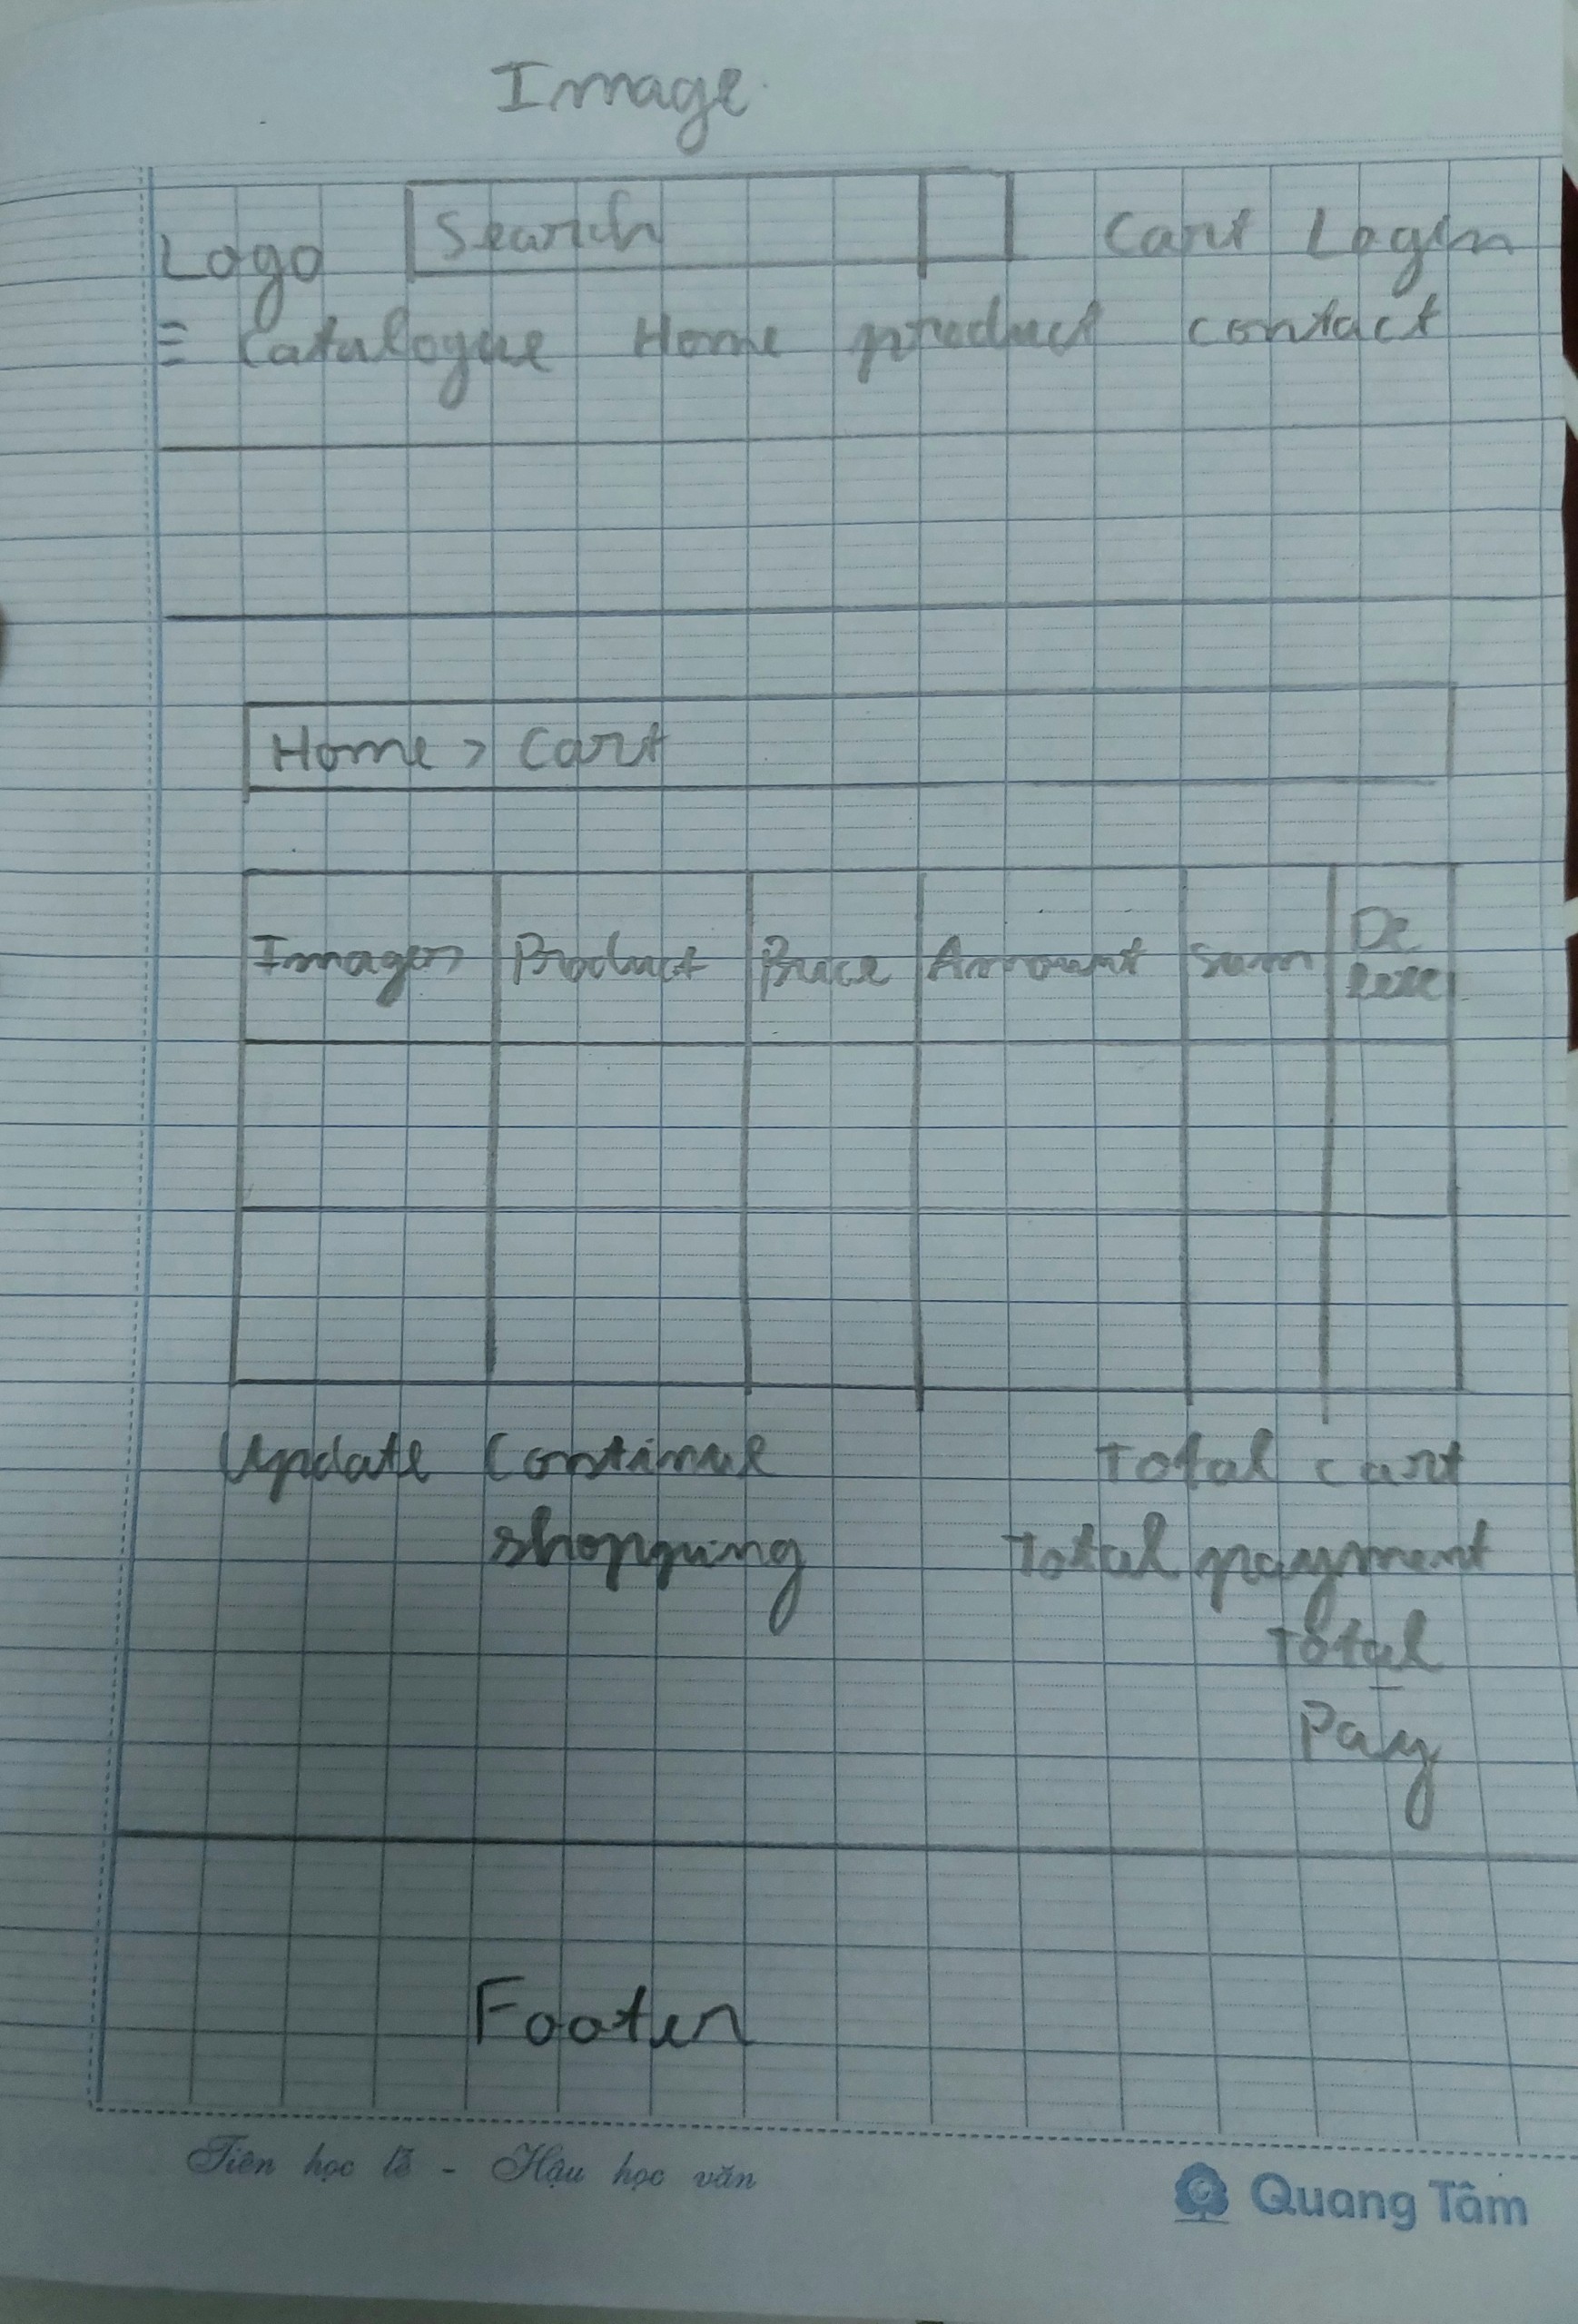 Image
Logo Search Cart Login
≡ Catalogue Home product contact
Home > Cart
Images Product Price Amount Sum De
lete
Update Continue Total cart
shopping Total payment
Total
Pay
Footer
Tiên học lễ - Hậu học văn
Quang Tâm